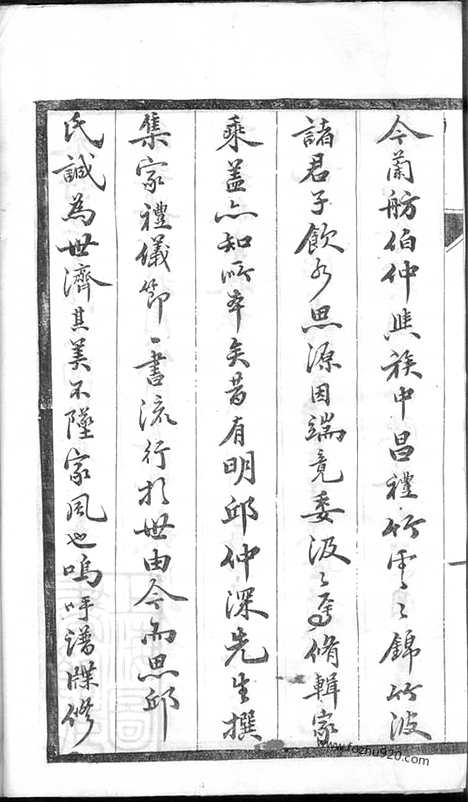 今蘭舫伯仲與族中昌禮竹雲雲錦竹波
諸君子飲水思源因端竟委汲汲焉脩輯家
乘盖亦知所本矣昔有明邱仲深先生撰
集家禮儀節一書流行於世由今而思邱
氏誠為世濟其美不墜家風也嗚呼譜牒修
www.fozhu920.com